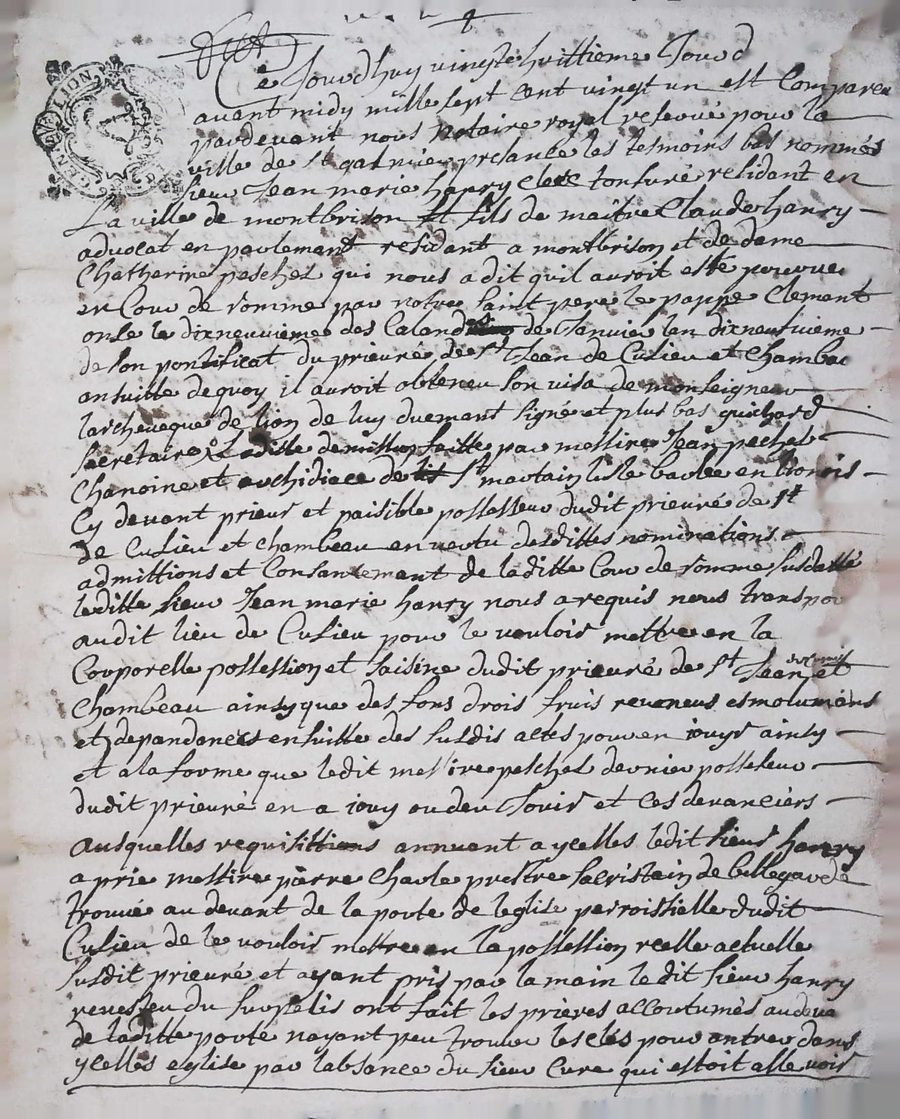 GEN DE LION
Ce Jourdhuy vingthuittieme Jour d
avant midy mille sept cent vingt un est Comparen
pardevant nous notaire royal reservé pour la
ville de St galmier presante les tesmoins bas nommés
sieur Jean marie harry clerc tonsuré residant en
La ville de montbrison Et fils de maître Claude harry
advocat en parlemant residant a montbrison et de dame
Chatherine peschet qui nous a dit quil auroit esté pourvu
en Cour de romme par notre saint pere le pappe Clement
onse le dixneuvieme des Calandes de Janvier lan dixneufvieme
de son pontificat du prieuré de St Jean de Culieu et Chambau
ensuitte dequoy il auroit obteneu son visa de monseigneur
larcheveque de lion de luy duemant signé et plus bas guichard
Secretaire laditte demission faitte par messire Jean peschet
Chanoine et archidiacre de St martain lisle barbe
Cy devant prieur et paisible possesseur dudit prieuré de St
de Culieu et chambeau en vertu desdittes nominations
admittions et Consantemant de laditte Cour de romme susdatté
leditte sieur Jean marie harry nous a requis nous transpor
audit lieu de Culieu pour le vouloir mettre en la
Corporelle possession et saisine dudit prieuré de St Jean et
Chambeau ainsyque des fons drois fruis reveneus esmolumans
et depandances ensuitte des susdis actes pour en iouyr ainsy
et a la forme que ledit messire peschet dernier possesseur
dudit prieuré en a iouy ou deu Jouir et ces devanciers
ausquelles requisittions annuant a ycelles ledit sieur harry
a prie messire pierre Charle prestre sacristain de bellegarde
trouvé au devant de la porte de leglise parroissielle dudit
Culieu de le vouloir mettre en la possession reelle actuelle
susdit prieuré et ayant pris par la main ledit sieur harry
revesteu du surpelis ont fait les prieres accoutumés audeva
de laditte porte nayant peu trouver les cles pour antrer dans
ycelles eglise par labsance du sieur Cure qui estoit alle voir